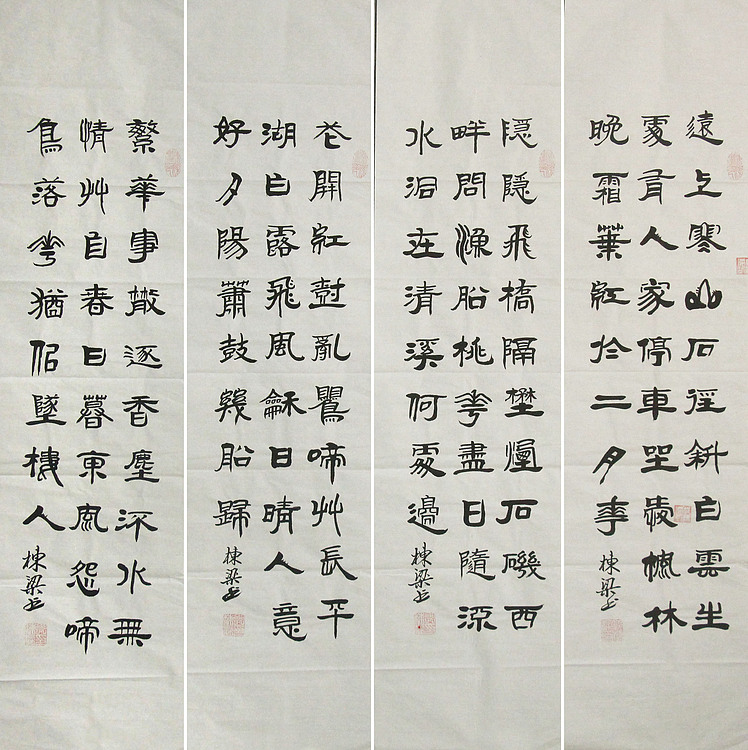 遠上寒山石徑斜白雲生
處有人家停車坐愛楓林
晚霜葉紅於二月花
棟梁書
隱隱飛橋隔壄煙石磯西
畔問漁船桃花盡日隨流
水洞在清溪何處邊
棟梁書
花開紅樹亂鶯啼艸長平
湖白露飛風龢日晴人意
好夕陽簫鼓幾船歸
棟梁書
繁華事散逐香塵流水無
情艸自春日暮東風怨啼
鳥落花猶佀墜樓人
棟梁書